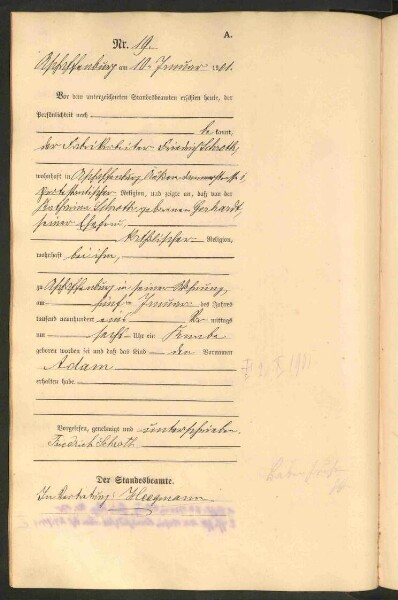 A.
Nr. 19.
Aschaffenburg am 10. Januar 1901.
Vor dem unterzeichneten Standesbeamten erschien heute, der
Persönlichkeit nach
be kannt,
der Fabrikarbeiter Friedrich Schroth,
wohnhaft in Aschaffenburg
protestantischer Religion, und zeigte an, daß von der
Katharina Schroth, geborenen Gerhardt,
seiner Ehefrau,
katholischer Religion,
wohnhaft bei ihm,
zu Aschaffenburg in seiner Wohnung,
am fünften Januar des Jahres
tausend neunhundert eins Vor mittags
um sechs Uhr ein Knabe
geboren worden sei und daß das Kind den Vornamen
Adam
erhalten habe
Vorgelesen, genehmigt und unterschrieben.
Friedrich Schroth
Der Standesbeamte.
In Vertretung: Heegmann